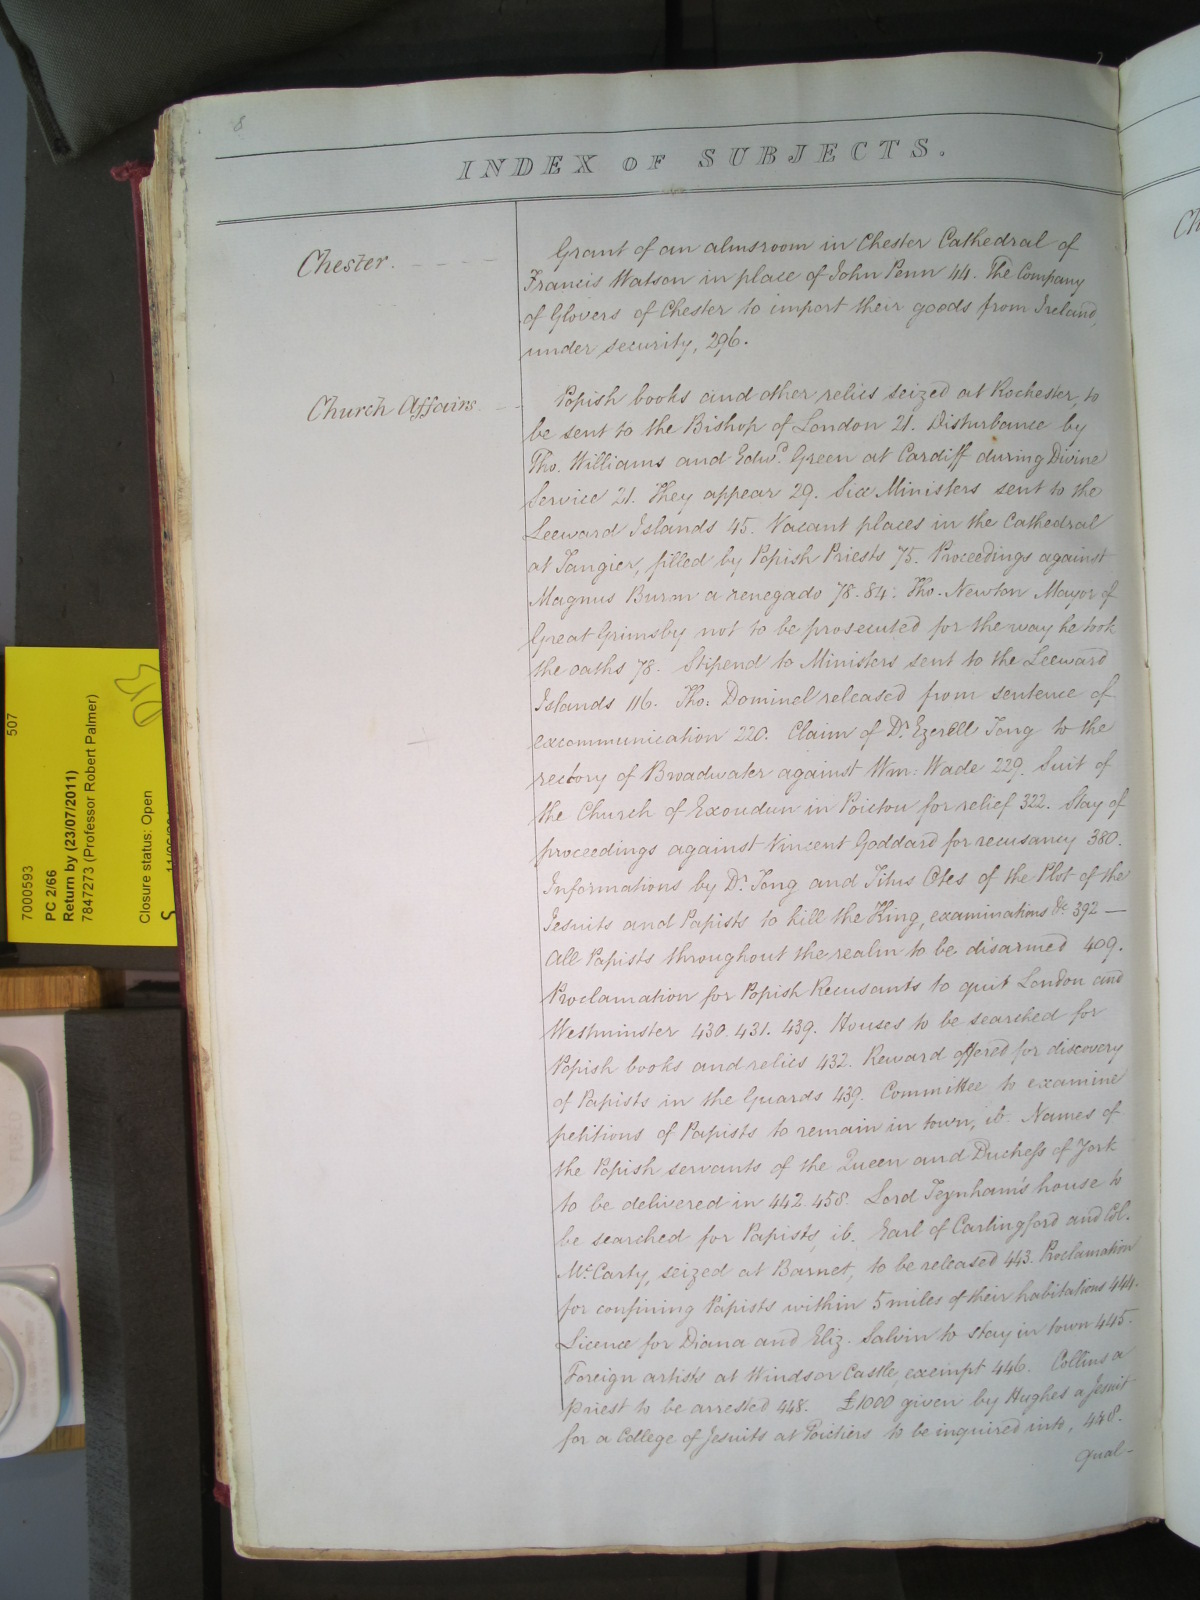 8
INDEX OF SUBJECTS.
Chester.
Grant of an almsroom in Chester Cathedral of
Francis Watson in place of John Penn 44. The Company
of Glovers of Chester to import their goods from Ireland,
under security, 296.
Church Affairs
Popish books and other relics seized at Rochester, to
be sent to the Bishop of London 21. Disturbance by
Tho. Williams and Edwd. Green at Cardiff during Divine
Service 21. They appear 29. Six Ministers sent to the
Leeward Islands 45. Vacant places in the Cathedral
at Tangier, filled by Popish Priests 75. Proceedings against
Magnus a renegado 78-84. Tho. Newton Mayor of
Great Grimsby not to be prosecuted for the way he took
the oaths 78. Stipend to Ministers sent to the Leeward
Islands 116. Tho. Dominel released from sentence of
excommunication 220. Claim of Dr. Ezerell Tong to the
rectory of Broadwater against Wm. Wade 229. Suit of
the Church of Exoudun in Poictou for relief 322. Stay of
proceedings against Vincent Goddard for recusancy 380.
Informations by Dr. Tong and Titus Otes of the Plot of the
Jesuits and Papists to kill the King, examinations &c. 392 —
All Papists throughout the realm to be disarmed 409.
Proclamation for Popish Recusants to quit London and
Westminster 430. 431. 439. Houses to be searched for
Popish books and relics 432. Reward offered for discovery
of Papists in the Guards 439. Committee to examine
petitions of Papists to remain in town, ib. Names of
the Popish servants of the Queen and Duchess of York
to be delivered in 442. 458. Lord Teynham's house to
be searched for Papists, ib. Earl of Carlingford and Col.
McCarty, seized at Barnet, to be released 443. Proclamation
for confining Papists within 5 miles of their habitations 444.
Licence for Diana and Eliz. Salvin to stay in town 445.
Foreign artists at Windsor Castle, exempt 446. Collins a
priest to be arrested 448. £1000 given by Hughes a Jesuit
for a College of Jesuits at Poictiers to be inquired into, 448.
Qual-
Ch
507
7000593
PC 2/66
Return by (23/07/2011)
7847273 (Professor Robert Palmer)
Closure status: Open